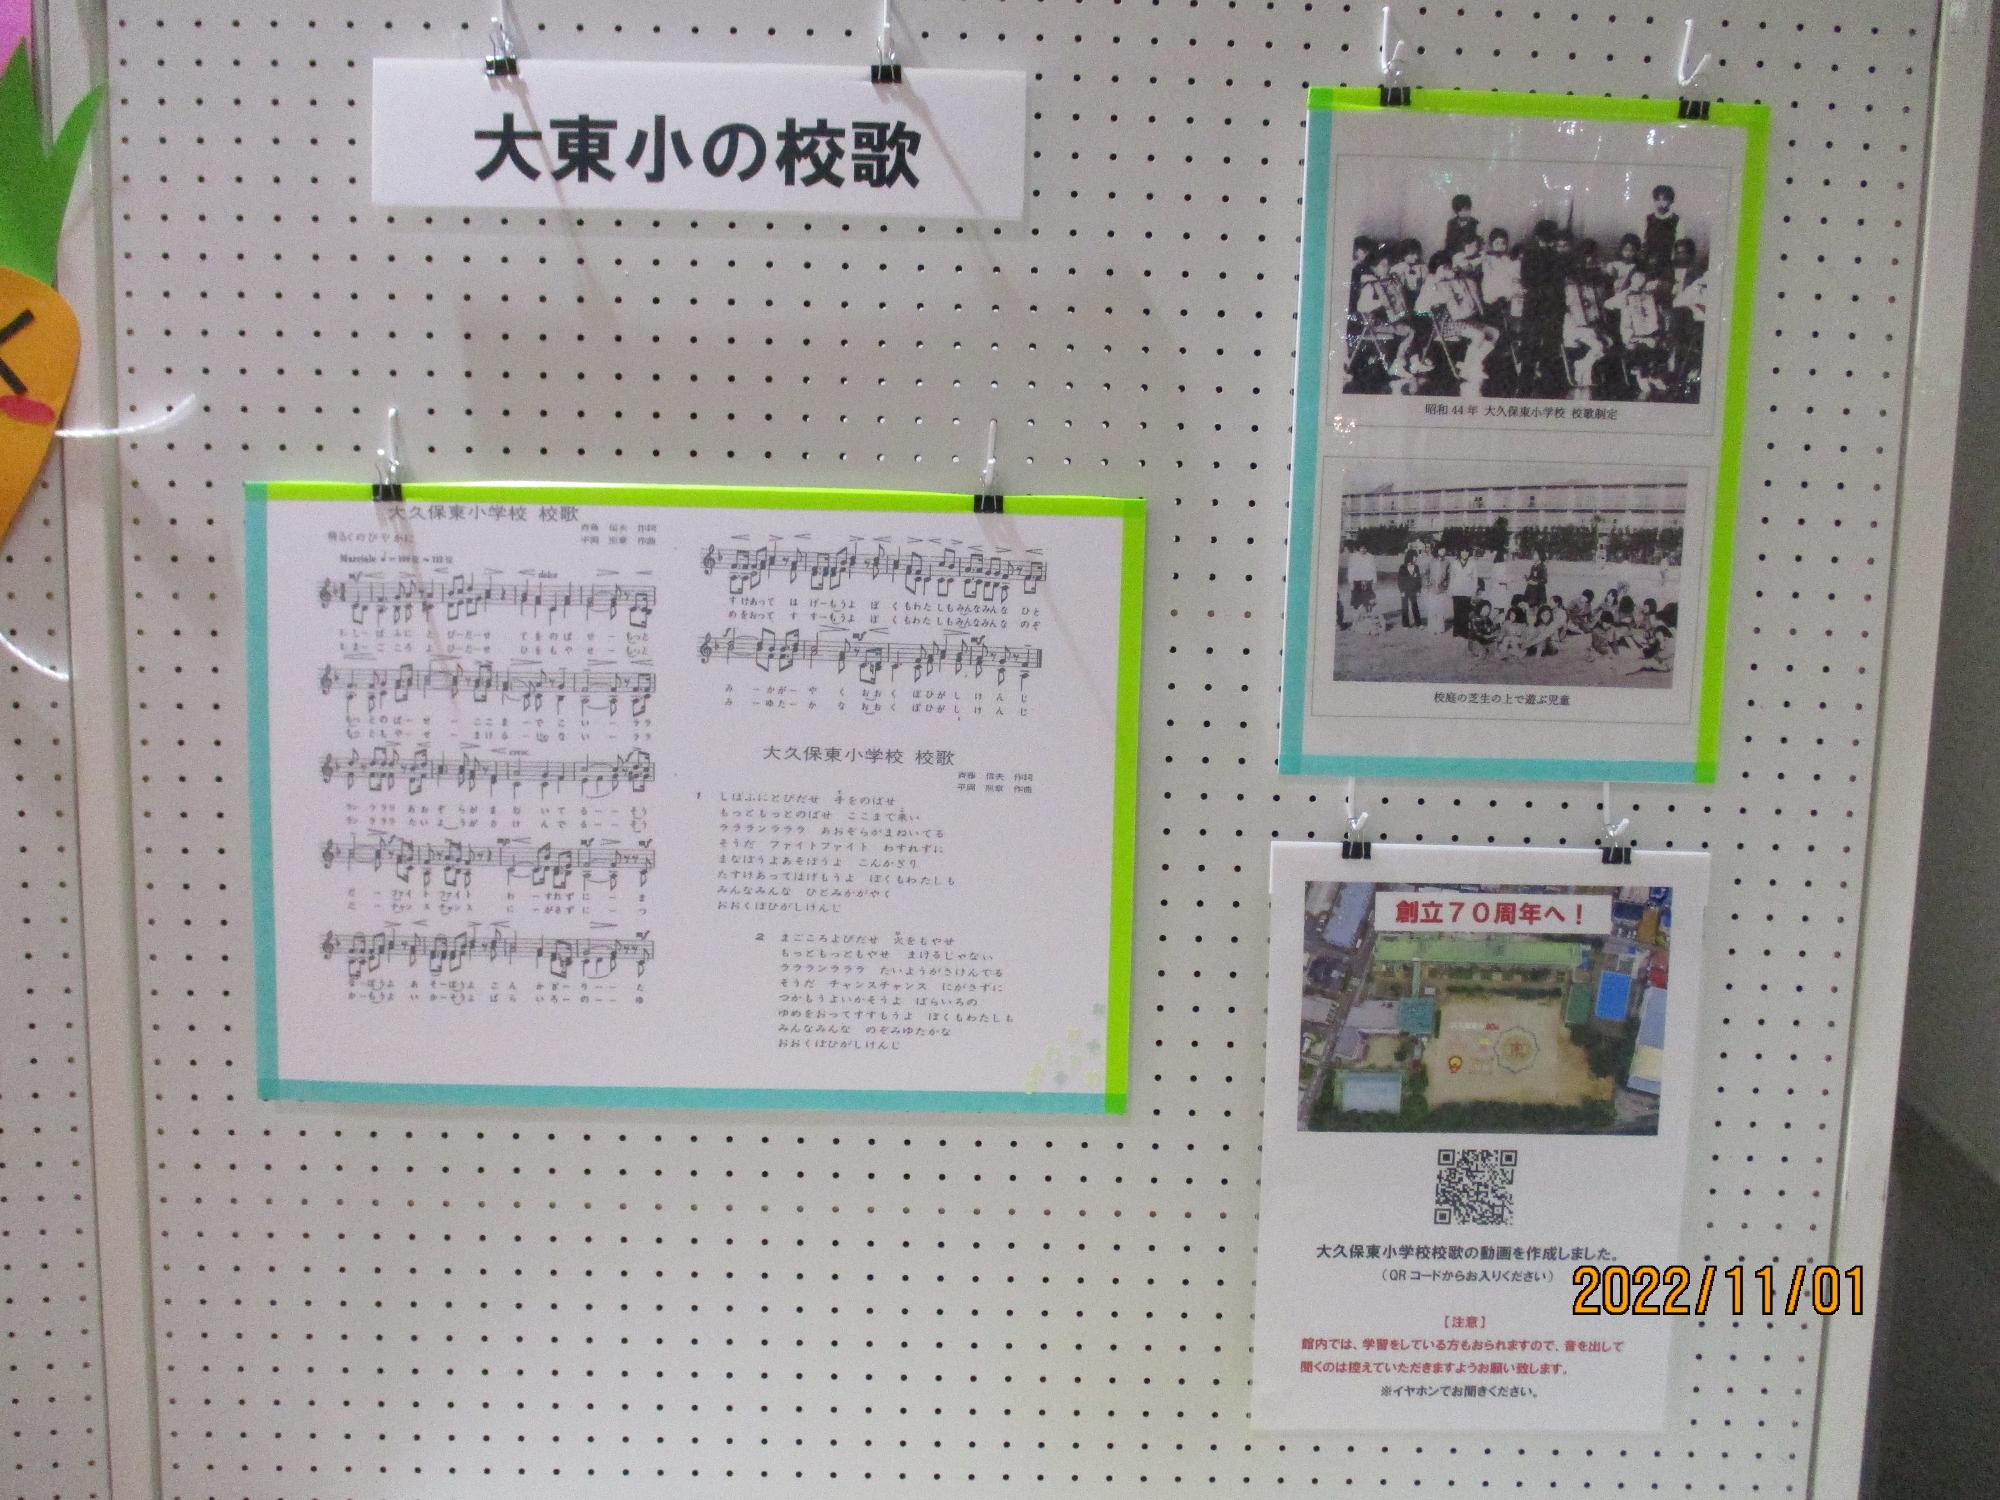 大東小の校歌
大久保東小学校 校歌
明るくのびやかに
斉藤 信夫 作詞
平岡 照章 作曲
Marciale
dolce
cresc.
すけあって は げーもうよ ぼ くもわた しもみんなみんな ひと
めをおって す すーもうよ ぼ くもわた しもみんなみんな のぞ
み ーかがー や く おお く ぼひがし け ん じ
み ーゆたー か な おお く ぼひがし け ん じ
大久保東小学校 校歌
斉藤 信夫 作詞
平岡 照章 作曲
1 しばふにとびだせ 手をのばせ
もっともっとのばせ ここまで来い
ラララランラララ あおぞらがまねいてる
そうだ ファイトファイト わすれずに
まなぼうよあそぼうよ こんかぎり
たすけあってはげもうよ ぼくもわたしも
みんなみんな ひとみかがやく
おおくぼひがしけんじ
2 まごころよびだせ 火をもやせ
もっともっともやせ まけるじゃない
ラララランラララ たいようがさけんでる
そうだ チャンスチャンス にがさずに
つかもうよいかそうよ ばらいろの
ゆめをおってすすもうよ ぼくもわたしも
みんなみんな のぞみゆたかな
おおくぼひがしけんじ
昭和44年 大久保東小学校 校歌制定
校庭の芝生の上で遊ぶ児童
創立70周年へ！
大久保東小学校校歌の動画を作成しました。
（QRコードからお入りください）
【注意】
館内では、学習をしている方もおられますので、音を出して
聞くのは控えていただきますようお願い致します。
※イヤホンでお聞きください。
2022/11/01